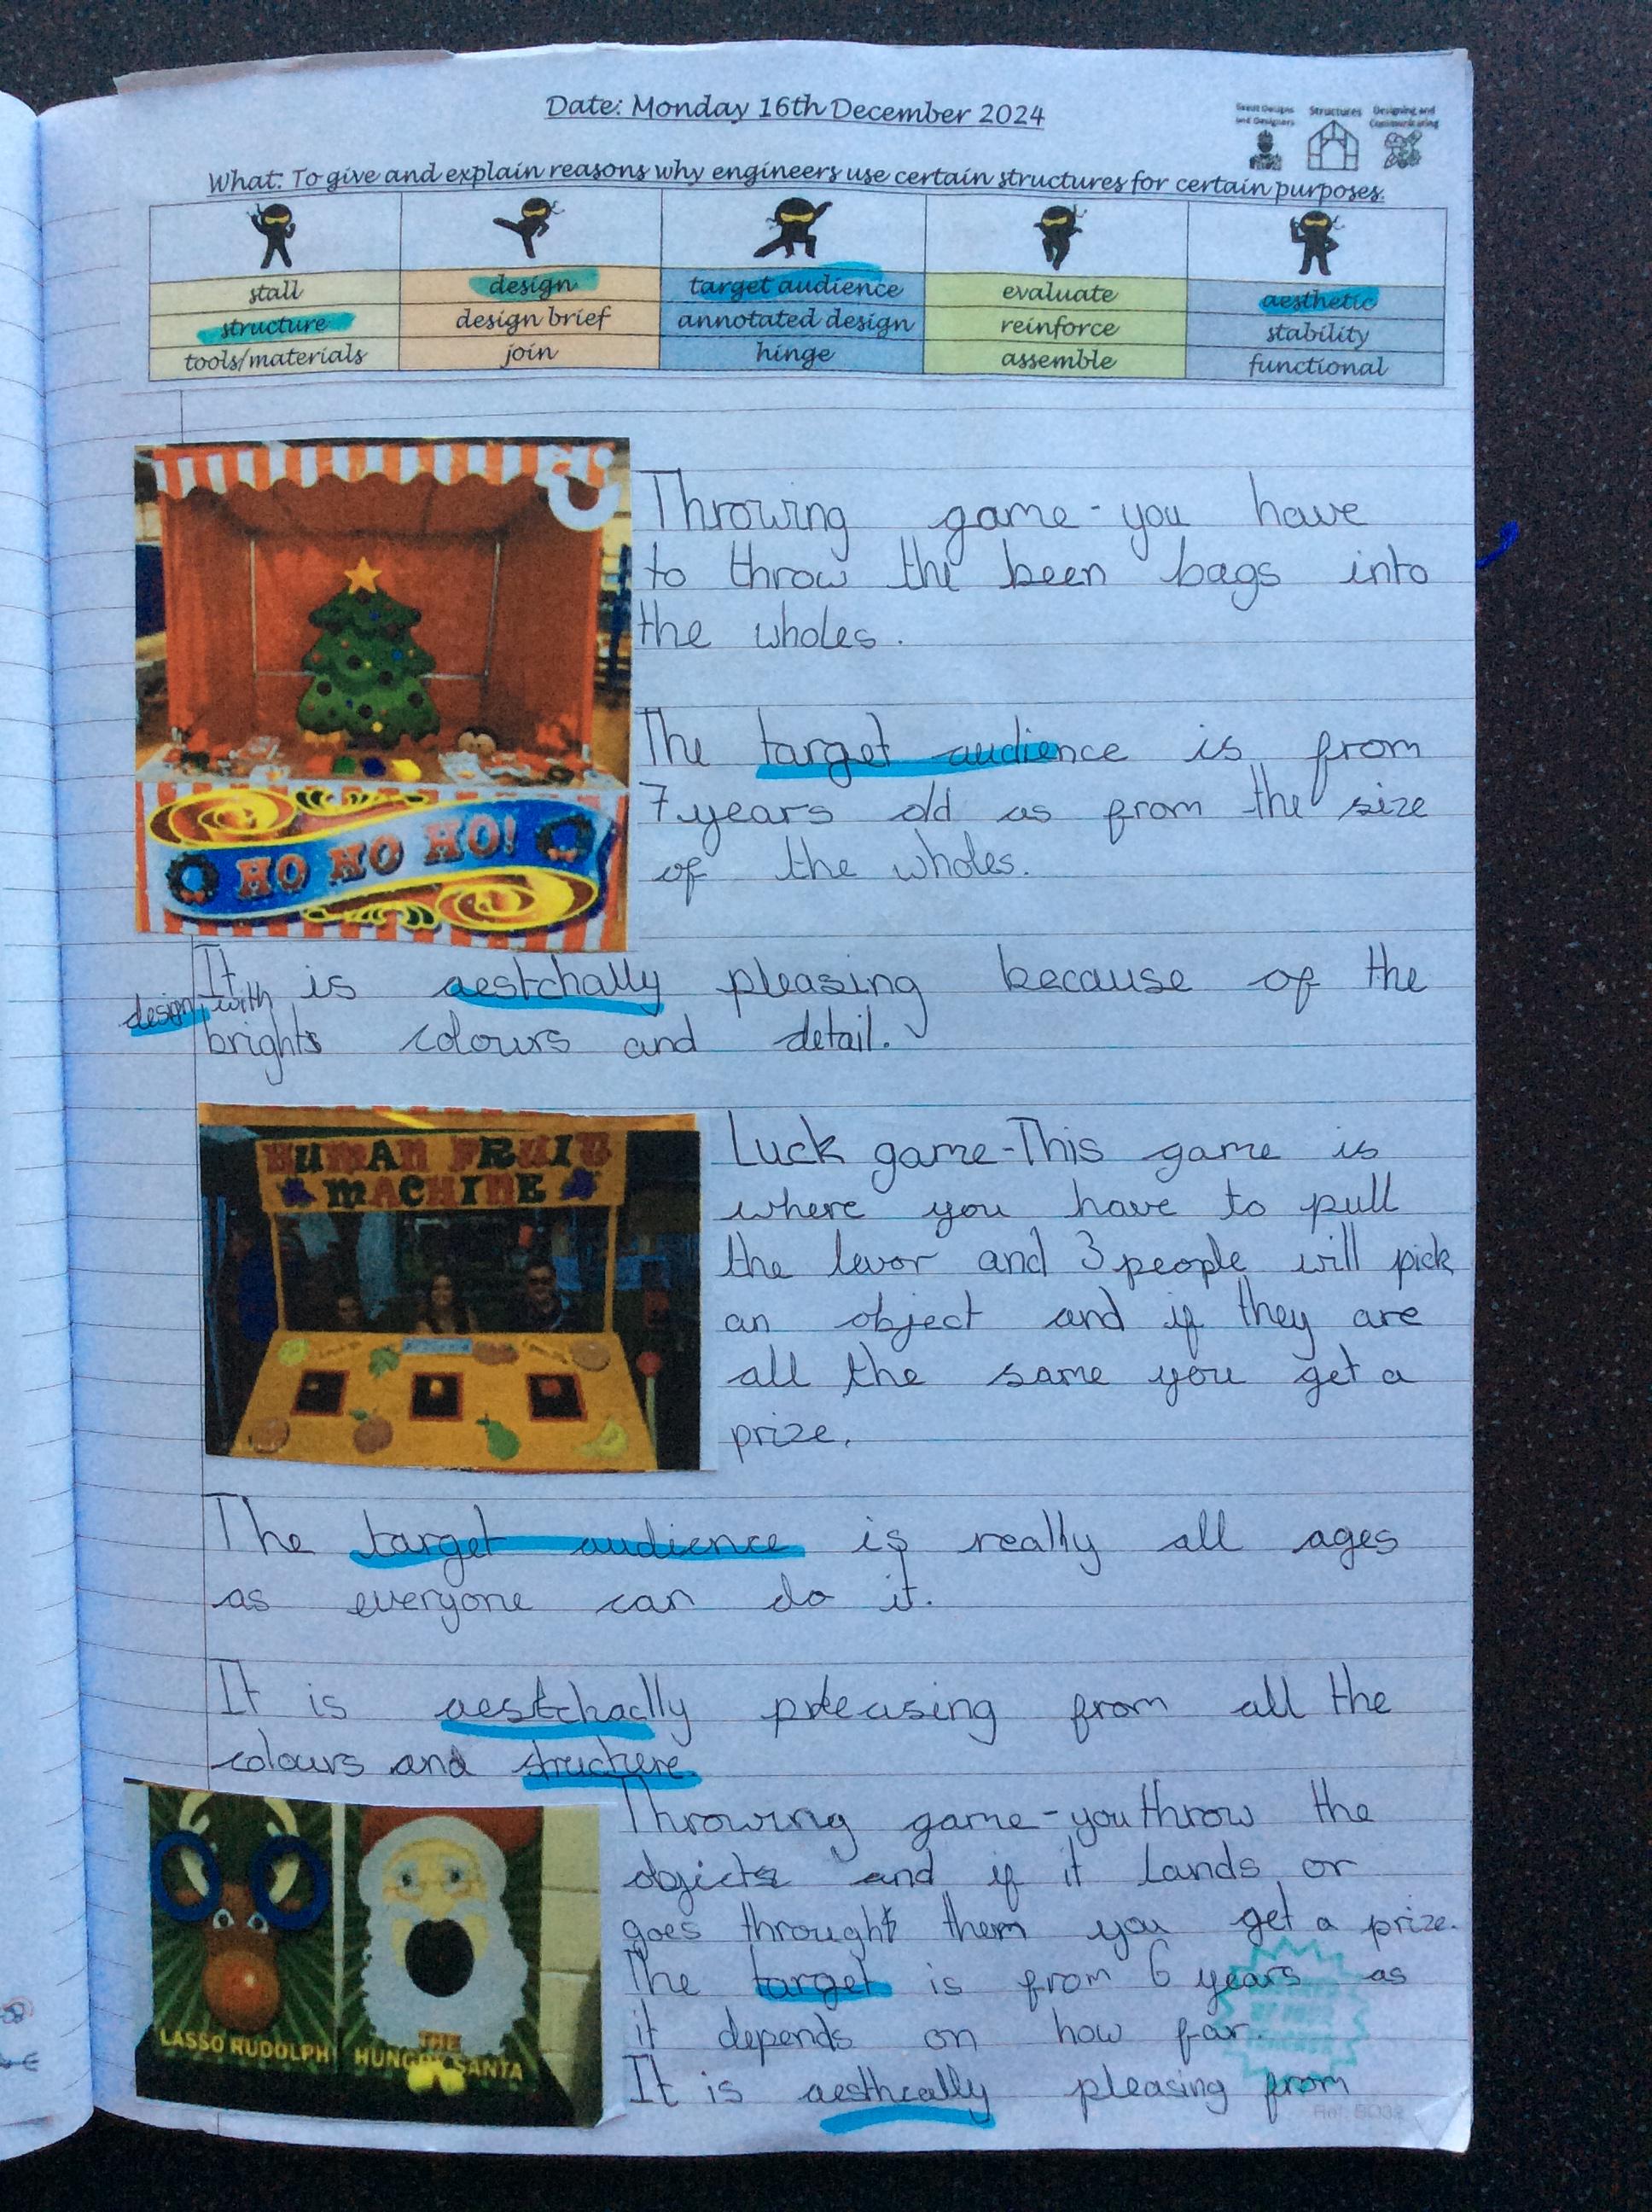 Date: Monday 16th December 2024
Great Designs and Designers
Structures
Designing and Communicating
What: To give and explain reasons why engineers use certain structures for certain purposes.
stall design target audience evaluate aesthetic
structure design brief annotated design reinforce stability
tools/materials join hinge assemble functional
Throwing game - you have
to throw the been bags into
the wholes.
HO HO HO!
The target audience is from
7 years old as from the size
of the wholes.
It is aestchally pleasing because of the
design, with
brights colours and detail.
HUMAN FRUIT
MACHINE
Luck game - This game is
where you have to pull
the levor and 3 people will pick
an object and if they are
all the same you get a
prize.
The target audience is really all ages
as everyone can do it.
It is aestchaclly pleasing from all the
colours and structure.
LASSO RUDOLPH
THE
HUNGRY SANTA
Throwing game - you throw the
objects and if it lands or
goes throught them you get a prize.
The target is from 6 years as
it depends on how far.
It is aesthcally pleasing from